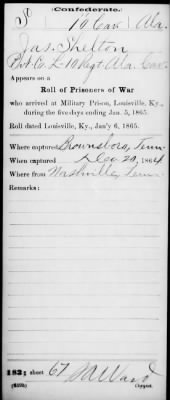 Confederate.
S 10 Cav. Ala.
Jas. Shelton
Pvt. Co. L 10 Regt. Ala. Cav.
Appears on a
Roll of Prisoners of War
who arrived at Military Prison, Louisville, Ky.,
during the five days ending Jan. 5, 1865.
Roll dated Louisville, Ky., Jan'y 6, 1865.
Where captured Brownsboro, Tenn
When captured Dec 20, 1864
Where from Nashville, Tenn
Remarks:
sheet 67 S A Ward
Copyist.